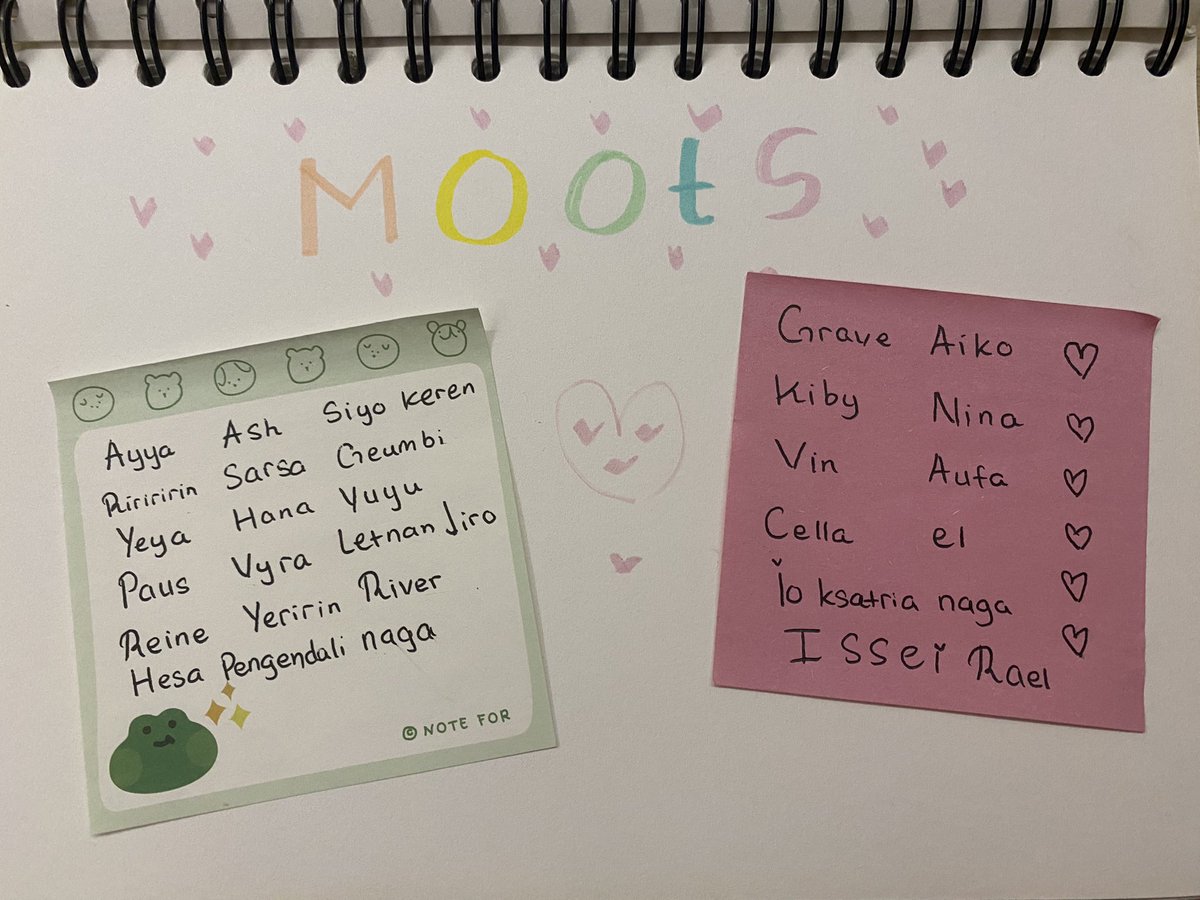 Moots
Ayya Ash Siyo keren
Ririririn Sarsa Geumbi
Yeya Hana Yuyu
Paus Vyra Letnan Jiro
Reine Yeririn River
Hesa Pengendali naga
© NOTE FOR
Grave Aiko
Kiby Nina
Vin Aufa
Cella el
Io ksatria naga
Issei Rael